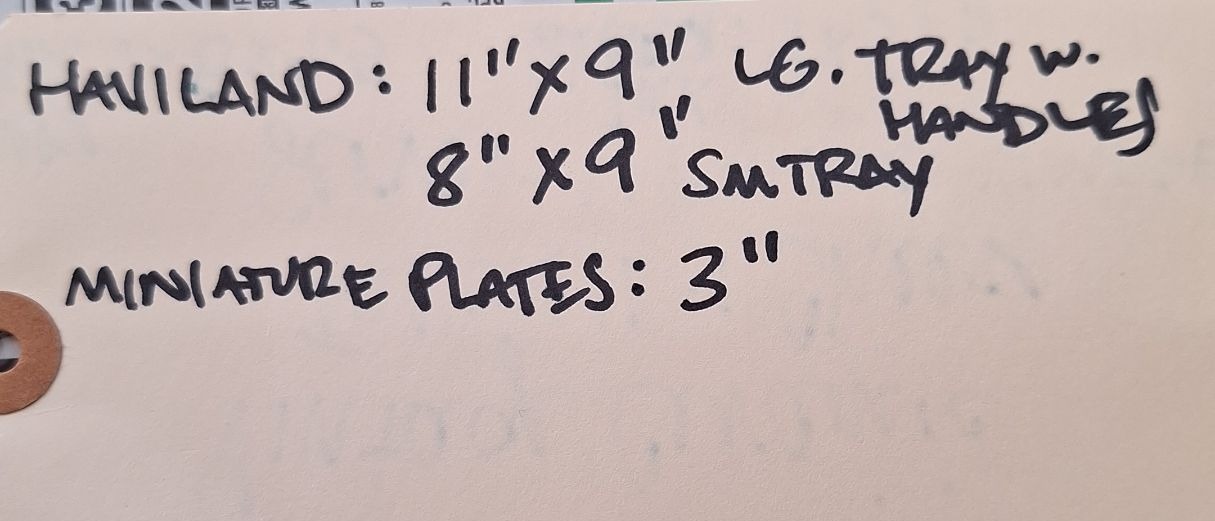 HAVILAND: 11" X 9" LG. TRAY W. HANDLES
8" X 9" SM TRAY
MINIATURE PLATES: 3"